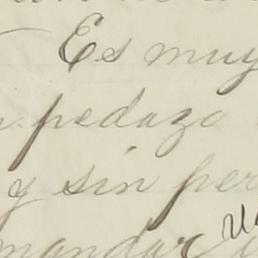 Es muy
pedazo
y sin per
mandar